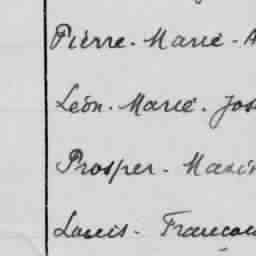 Pierre-Marie-A
Léon-Marie-Jos
Prosper-Maxim
Louis-Francois